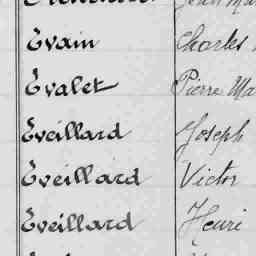 Evain Charles
Evalet Pierre Ma
Eveillard Joseph
Eveillard Victor
Eveillard Henri